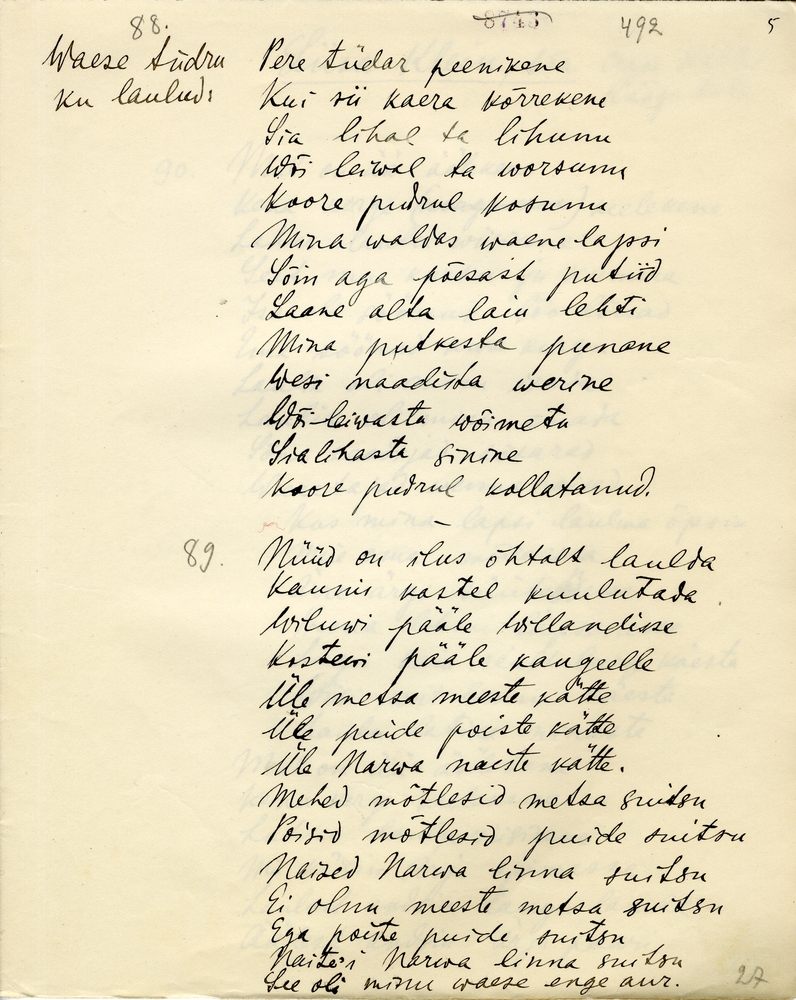 88.
8743
492
5
Waese tüdru
ku laulud:
Pere tüdar peenikene
Kui sii kaera kõrrekene
Sia lihal ta lihunu
Wõi leiwal ta worsunu
Koore pudrul kosunu
Mina waldas waene-lapsi
Sõin aga põesast putiid
Laane alta laiu lehti
Mina putkesta punane
Wesi naadista werine
Wõi-leiwasta wõimeta
Sialihasta sinine
Koore pudrul kollatanud.
89.
Nüüd on ilus õhtalt laulda
Kaunis kastel kuulutada
Wiluwi pääle Willandisse
Kastewi pääle kaugeelle
Üle metsa meeste kätte
Üle puide poiste kätte
Üle Narwa naiste kätte.
Mehed mõtlesid metsa suitsu
Poisid mõtlesid puide suitsu
Naised Narwa linna suitsu
Ei olnu meeste metsa suitsu
Ega poiste puide suitsu
Naiste'i Narwa linna suitsu
See oli minu waese enge aur.
27